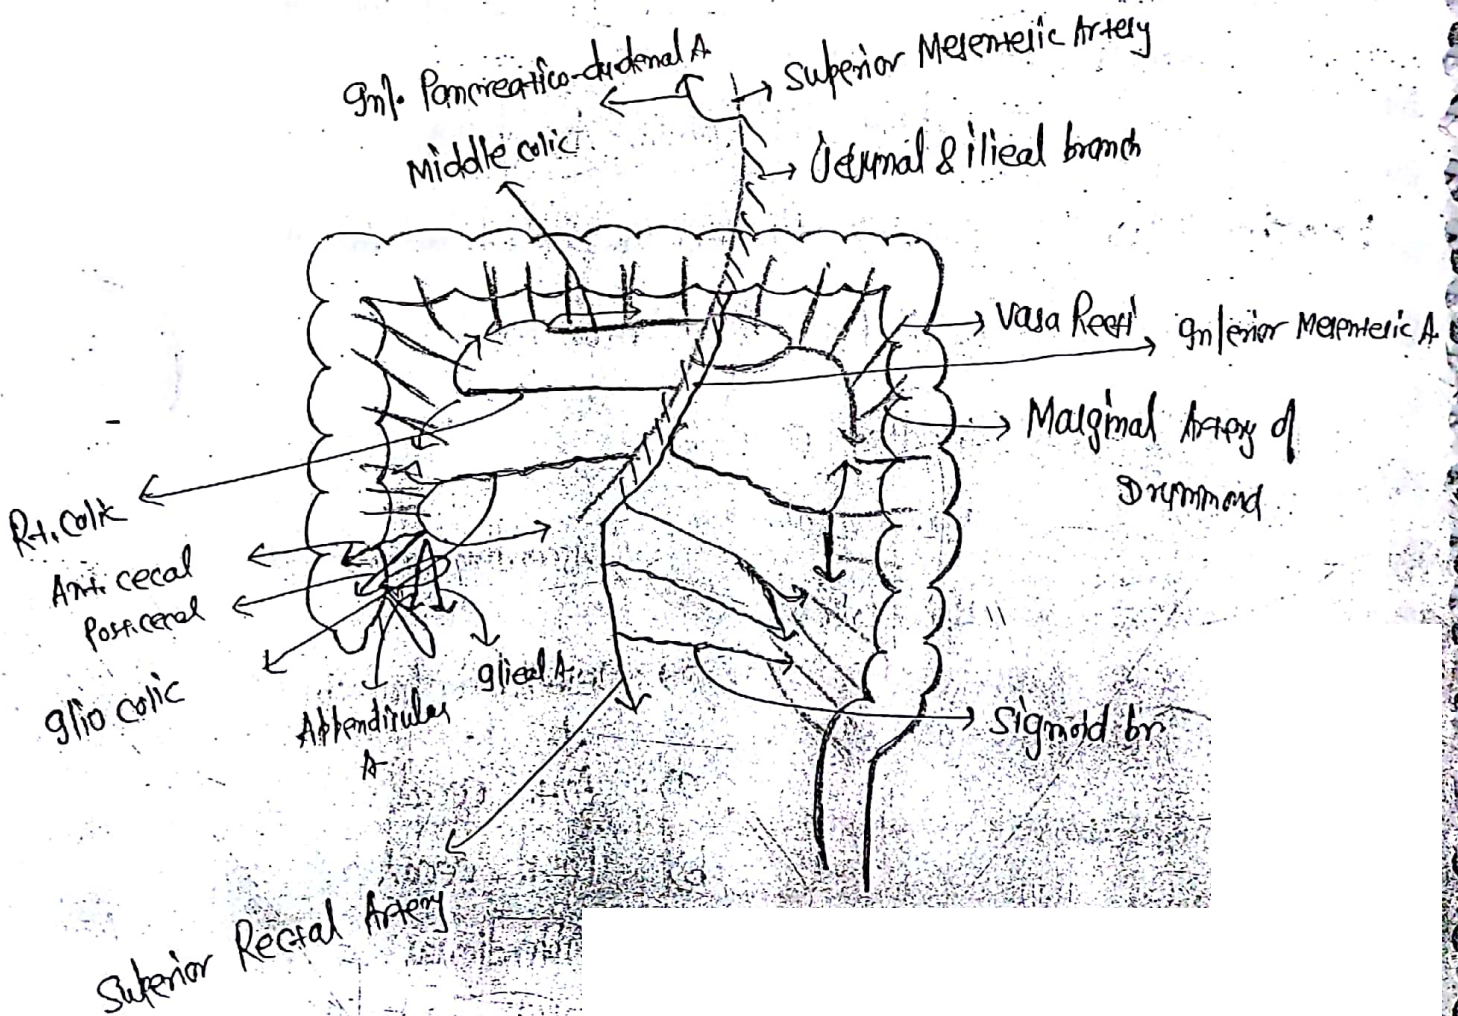 Inf. Pancreatico-dudenal A.
Superior Mesenteric Artery
Middle colic
Jejunal & ilieal branch
Vasa Recti
Inferior Mesenteric A.
Marginal Artery of
Drummond
Rt. Colic
Ant. cecal
Post. cecal
Ilio colic
Appendicular
A
Ilieal A.
Sigmoid br
Superior Rectal Artery